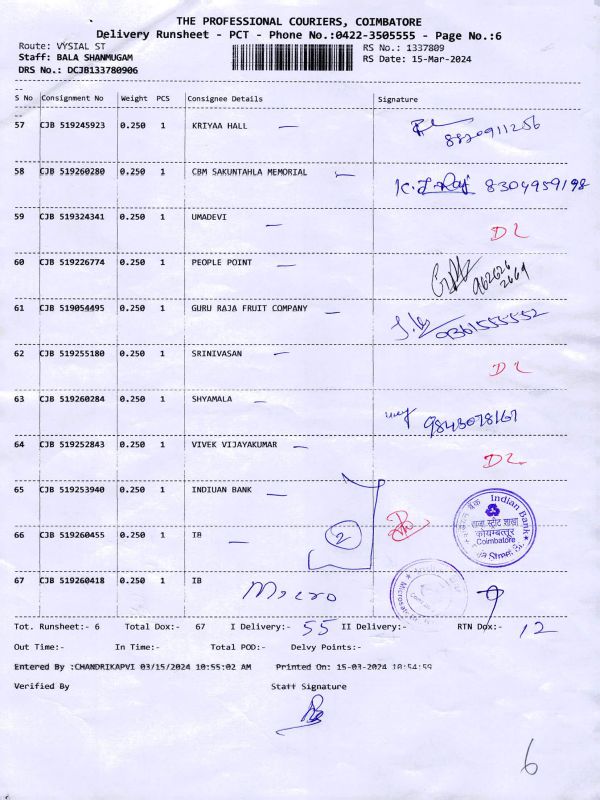 THE PROFESSIONAL COURIERS, COIMBATORE
Delivery Runsheet - PCT - Phone No.:0422-3505555 - Page No.:6
Route: VYSIAL ST RS No.: 1337809
Staff: BALA SHANMUGAM RS Date: 15-Mar-2024
DRS No.: DCJB133780906
S No Consignment No Weight PCS Consignee Details Signature
57 CJB 519245923 0.250 1 KRIYAA HALL 8820911256
58 CJB 519260280 0.250 1 CBM SAKUNTAHLA MEMORIAL 8304959198
59 CJB 519324341 0.250 1 UMADEVI DL
60 CJB 519226774 0.250 1 PEOPLE POINT
61 CJB 519054495 0.250 1 GURU RAJA FRUIT COMPANY 9361553552
62 CJB 519255180 0.250 1 SRINIVASAN DL
63 CJB 519260284 0.250 1 SHYAMALA 9843078167
64 CJB 519252843 0.250 1 VIVEK VIJAYAKUMAR DL
65 CJB 519253940 0.250 1 INDIUAN BANK
Indian Bank
कोयम्बत्तूर
Coimbatore
66 CJB 519260455 0.250 1 IB 2
67 CJB 519260418 0.250 1 IB Micro
Tot. Runsheet:- 6 Total Dox:- 67 I Delivery:- 55 II Delivery:- RTN Dox:- 12
Out Time:- In Time:- Total POD:- Delvy Points:-
Entered By :CHANDRIKAPVI 03/15/2024 10:55:02 AM Printed On: 15-03-2024 10:54:59
Verified By Staff Signature
6